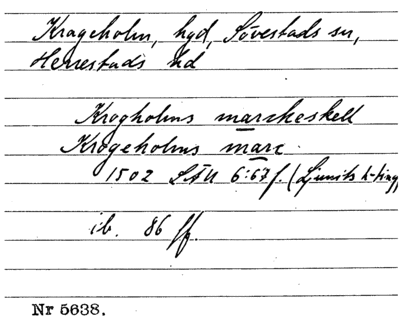 Krageholm, hgd, Sövestads sn,
Herrestads hd
Krogholms marcheskell
Krogeholms marc
1502 SSU 6:67 f. (Ljunits h-ting
ib. 86 ff.
Nr 5638.